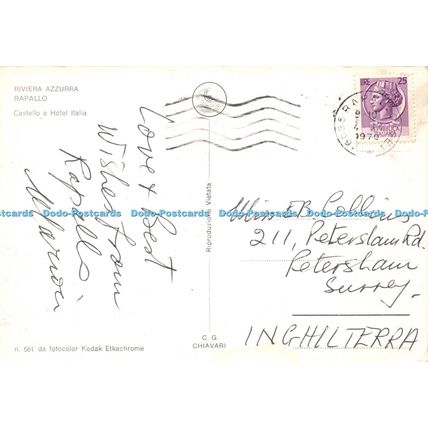 RIVIERA AZZURRA
RAPALLO
Castello e Hotel Italia
Love + Best
Wishes from
Rapallo.
Marion
n. 561 da fotocolor Kodak Etkachrome
Riproduzione Vietata
C. G.
CHIAVARI
LIRE 25
1976
Miss EB Collins
211, Petersham Rd.
Petersham
Surrey.
INGHILTERRA
Dodo-Postcards Dodo-Postcards Dodo-Postcards Dodo-Postcards